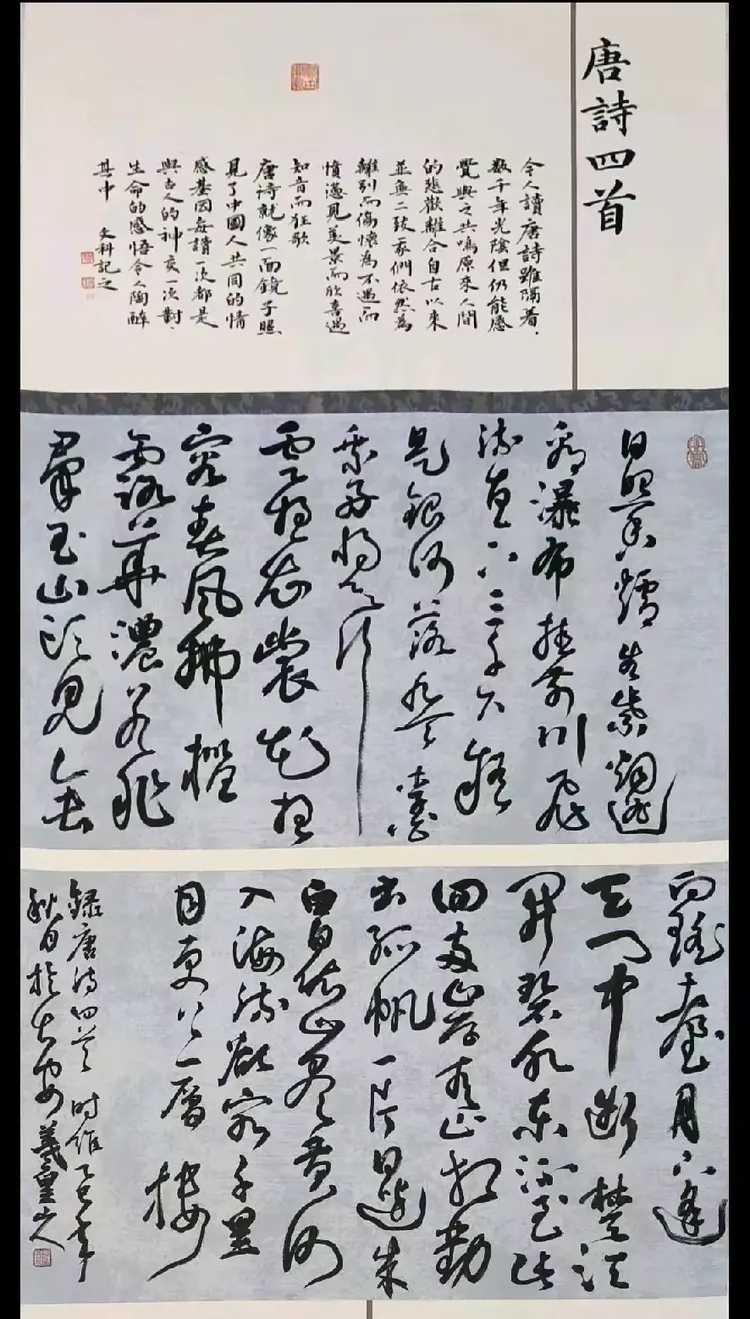 唐詩四首
令人讀唐詩雖隔着、
数千年光陰但仍能感
覺與之共鳴原來人間
的悲歡離合自古以來
並無二致我們依然為
離別而傷懷為不遇而
憤懣見美景而欣喜遇
知音而狂歌
唐詩就像一面鏡子照
見了中國人共同的情
感基因每讀一次都是
與古人的神交一次對、
生命的感悟令人陶醉
其中 文科記之
日照香爐生紫烟遥
看瀑布挂前川飛
流直下三千尺疑
是銀河落九天
雲想衣裳花想
容春風拂檻
露華濃若非
群玉山頭見會
向瑤臺月下逢
天門中断楚江
開碧水東流至此
回两岸青山相對
出孤帆一片日邊来
白日依山盡黄河
入海流欲窮千里
目更上一層樓
録唐詩四首 时維乙巳年
秋月於 羲皇山人